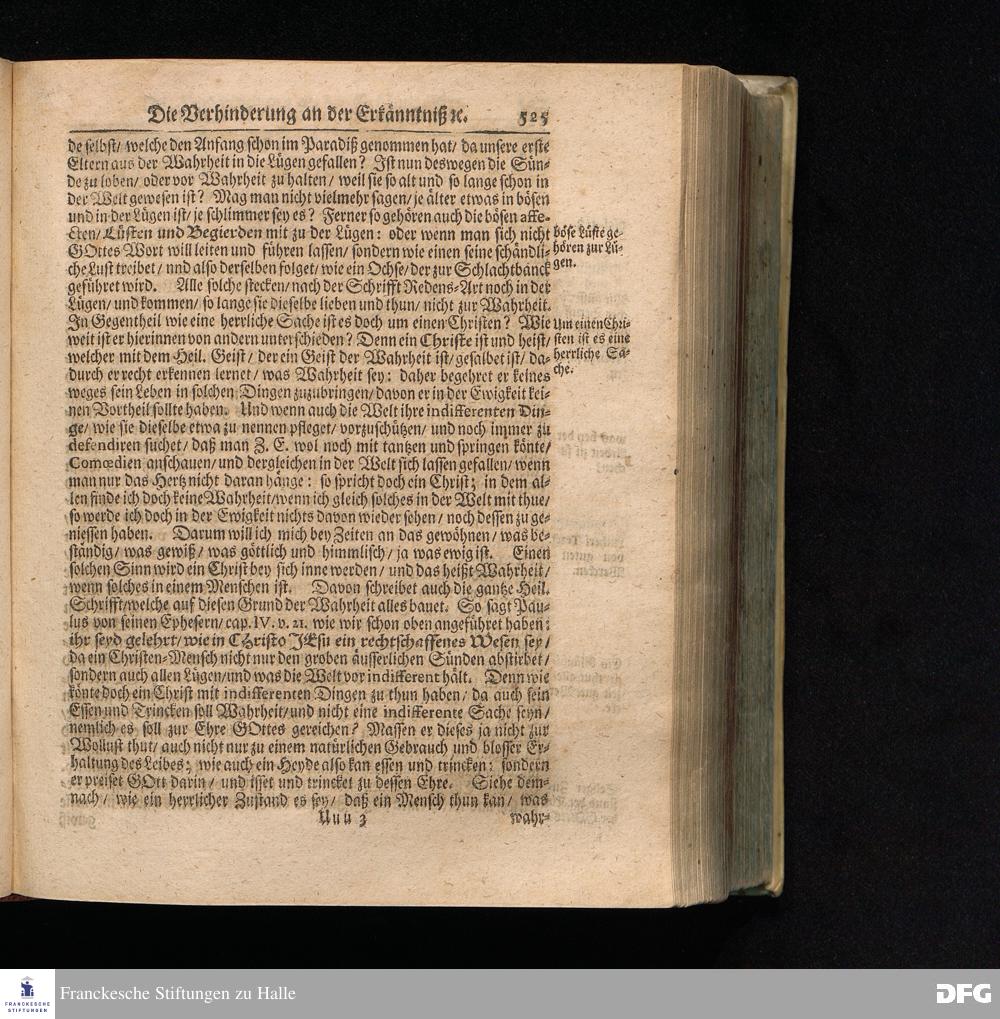 Die Verhinderung an der Erkänntniß ꝛc. 525
de selbst/ welche den Anfang schon im Paradiß genommen hat/ da unsere erste
Eltern aus der Wahrheit in die Lügen gefallen? Ist nun deswegen die Sün-
de zu loben/ oder vor Wahrheit zu halten/ weil sie so alt und so lange schon in
der Welt gewesen ist? Mag man nicht vielmehr sagen/ je älter etwas in bösen
und in der Lügen ist/ je schlimmer sey es? Ferner so gehören auch die bösen affe-
cten/ Lüsten und Begierden mit zu der Lügen: oder wenn man sich nicht
GOttes Wort will leiten und führen lassen/ sondern wie einen seine schändli-
che Lust treibet/ und also derselben folget/ wie ein Ochse/ der zur Schlachtbanck
geführet wird. Alle solche stecken/ nach der Schrifft Redens-Art noch in der
Lügen/ und kommen/ so lange sie dieselbe lieben und thun/ nicht zur Wahrheit.
In Gegentheil wie eine herrliche Sache ist es doch um einen Christen? Wie
weit ist er hierinnen von andern unterschieden? Denn ein Christe ist und heist/
welcher mit dem Heil. Geist/ der ein Geist der Wahrheit ist/ gesalbet ist/ da-
durch er recht erkennen lernet/ was Wahrheit sey: daher begehret er keines
weges sein Leben in solchen Dingen zuzubringen/ davon er in der Ewigkeit kei-
nen Vortheil sollte haben. Und wenn auch die Welt ihre indifferenten Din-
ge/ wie sie dieselbe etwa zu nennen pfleget/ vorzuschützen/ und noch immer zu
defendiren suchet/ daß man Z. E. wol noch mit tantzen und springen könte/
Comœdien anschauen/ und dergleichen in der Welt sich lassen gefallen/ wenn
man nur das Hertz nicht daran hänge: so spricht doch ein Christ; in dem al-
len finde ich doch keine Wahrheit/ wenn ich gleich solches in der Welt mit thue/
so werde ich doch in der Ewigkeit nichts davon wieder sehen/ noch dessen zu ge-
niessen haben. Darum will ich mich bey Zeiten an das gewöhnen/ was be-
ständig/ was gewiß/ was göttlich und himmlisch/ ja was ewig ist. Einen
solchen Sinn wird ein Christ bey sich inne werden/ und das heißt Wahrheit/
wenn solches in einem Menschen ist. Davon schreibet auch die gantze Heil.
Schrifft/ welche auf diesen Grund der Wahrheit alles bauet. So sagt Pau-
lus von seinen Ephesern/ cap. IV. v. 21. wie wir schon oben angeführet haben:
ihr seyd gelehrt/ wie in Christo JEsu ein rechtschaffenes Wesen sey/
da ein Christen-Mensch nicht nur den groben äusserlichen Sünden abstirbet/
sondern auch allen Lügen/ und was die Welt vor indifferent hält. Denn wie
könte doch ein Christ mit indifferenten Dingen zu thun haben/ da auch sein
Essen und Trincken soll Wahrheit/ und nicht eine indifferente Sache seyn/
nemlich es soll zur Ehre GOttes gereichen? Massen er dieses ja nicht zur
Wollust thut/ auch nicht nur zu einem natürlichen Gebrauch und blosser Er-
haltung des Leibes; wie auch ein Heyde also kan essen und trincken: sondern
er preiset GOtt darin/ und isset und trincket zu dessen Ehre. Siehe dem-
nach/ wie ein herrlicher Zustand es sey/ daß ein Mensch thun kan/ was
Uuu 3 wahr-
böse Lüste ge-
hören zur Lü-
gen.
Um einen Chri-
sten ist es eine
herrliche Sa-
che.
FRANCKESCHE
STIFTUNGEN
Franckesche Stiftungen zu Halle
DFG